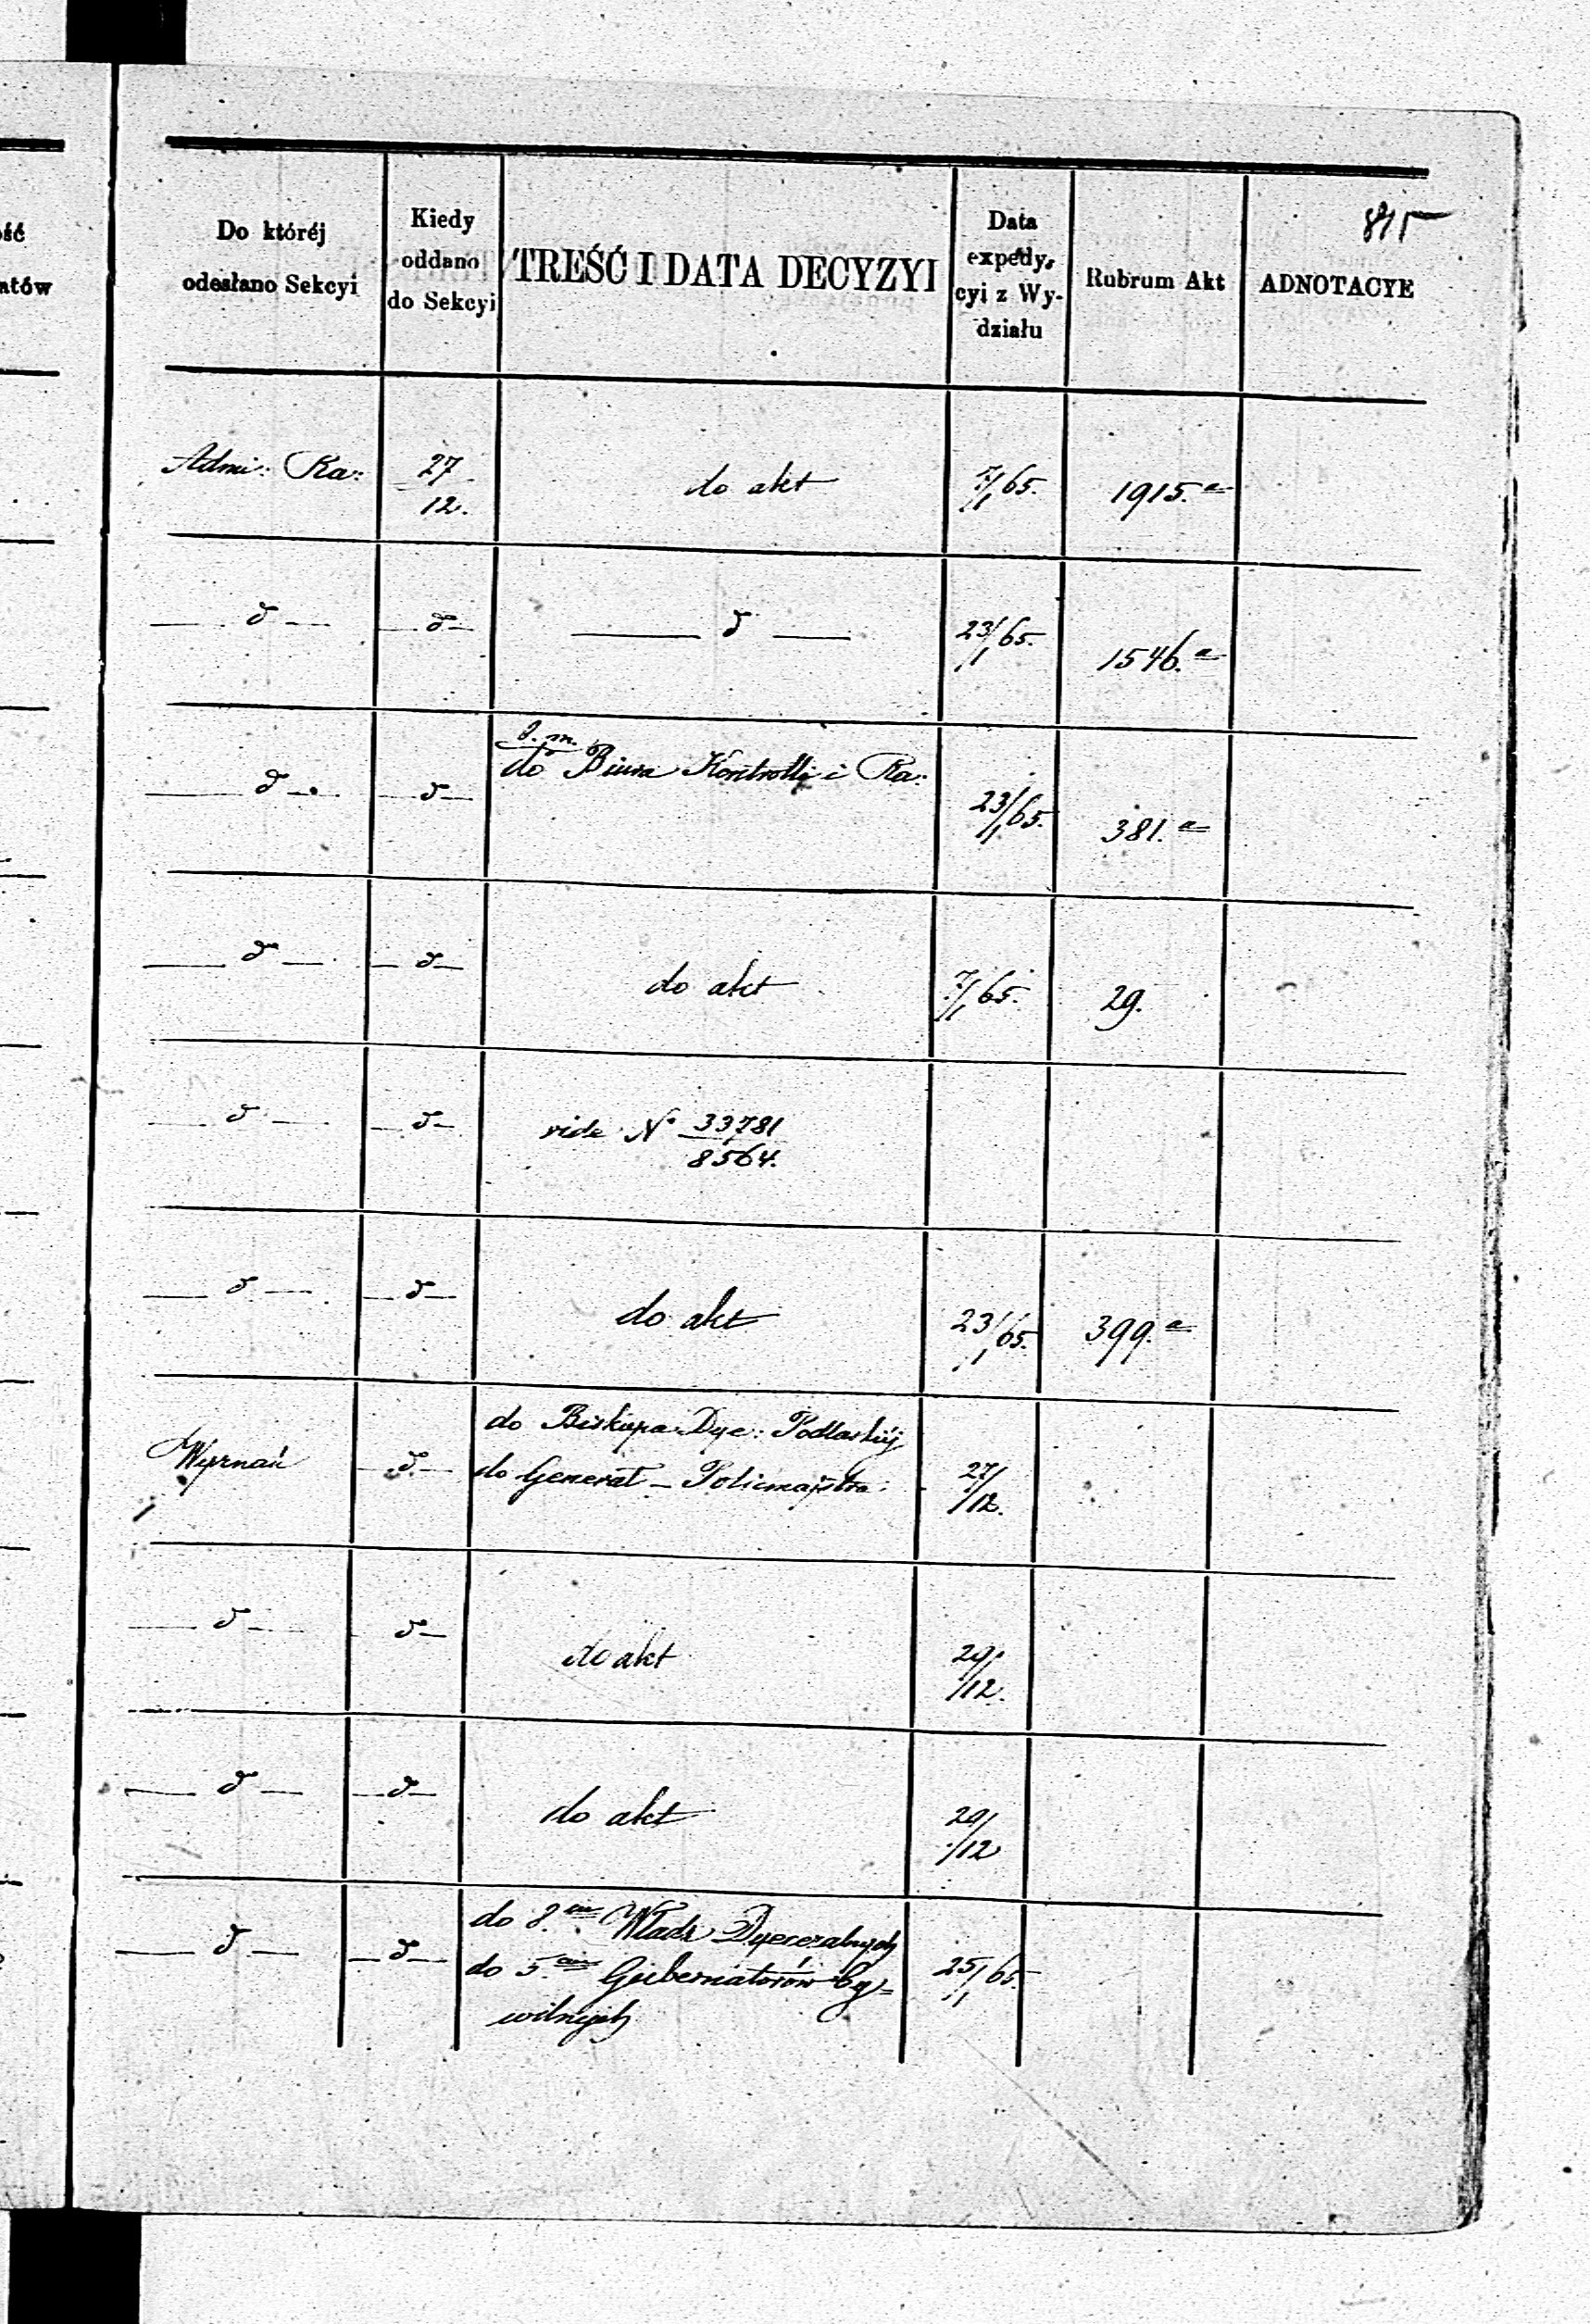 ść
ntów
Do któréj
odesłano Sekcyi
Kiedy
oddano
do Sekcyi
TREŚĆ I DATA DECYZYI
Data
expedy-
cyi z Wy-
działu
Rubrum Akt
ADNOTACYE
Admi: Ra: 27/12. do akt 7/1 65. 1915.a
— d — — d — — d — 23/1 65. 1546.a
— d — — d — do Biura Kontrolli i Ra: 23/1 65. 381.a
— d — — d — do akt 7/1 65. 29.
— d — — d — vide No 33781/8564.
— d — — d — do akt 23/1 65. 399.a
Wyznań — d — do Biskupa Dye: Podlaskiéj
do Generał-Policmajstra 27/12.
— d — — d — do akt 29/12.
— d — — d — do akt 29/12
— d — — d — do 8.miu Władz Dyecezalnych
do 5.ciu Gubernatorów Cy= 25/1 65.
wilnych